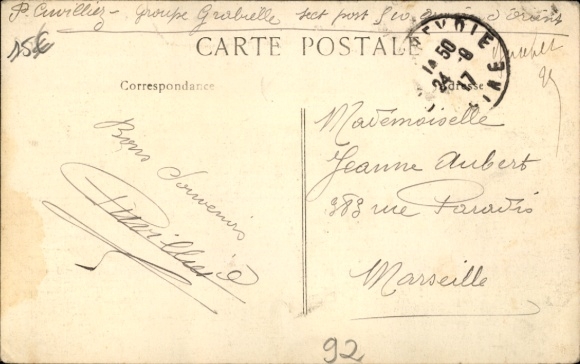 P. Cuvillier - Groupe Grabielle sect post 510 d'Orient
15€
CARTE POSTALE
Correspondance
Adresse
14 50
24 - 8
17
Bons Souvenirs
PCuvillier
Mademoiselle
Jeanne Aubert
383 rue Paradis
Marseille
92